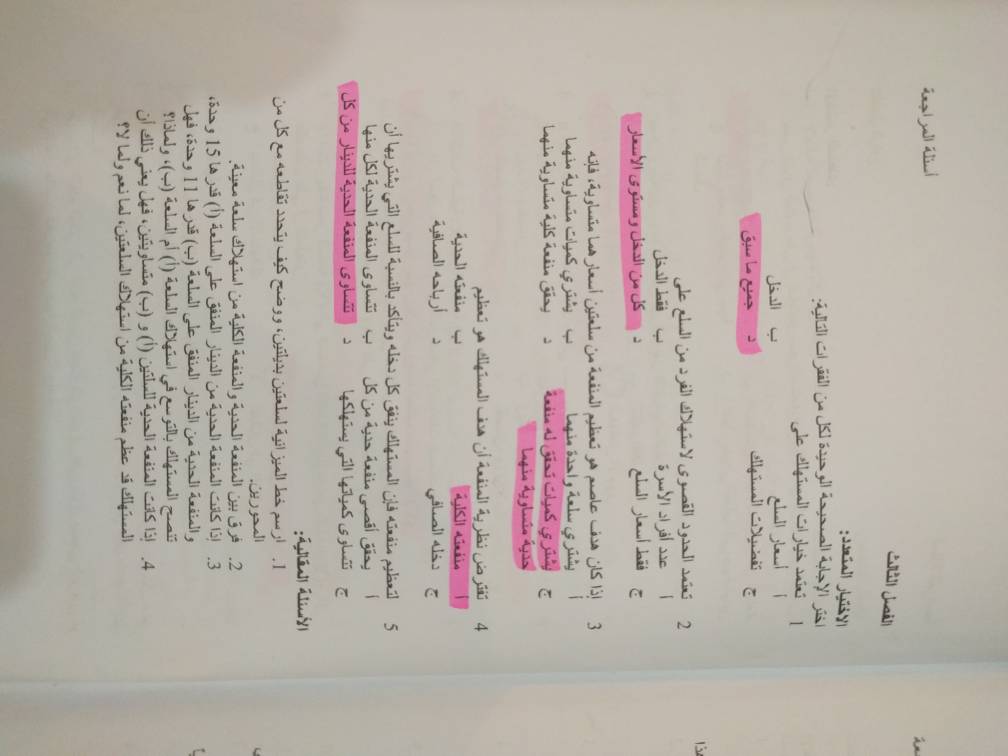 أسئلة المراجعة
الفصل الثالث
الاختيار المتعدد:
اختر الإجابة الصحيحة الوحيدة لكل من الفقرات التالية:
1 تعتمد خيارات المستهلك على
أ أسعار السلع ب الدخل
ج تفضيلات المستهلك د جميع ما سبق
2 تعتمد الحدود القصوى لاستهلاك الفرد من السلع على
أ عدد أفراد الأسرة ب فقط الدخل
ج فقط أسعار السلع د كل من الدخل ومستوى الأسعار
3 إذا كان هدف عاصم هو تعظيم المنفعة من سلعتين أسعار هما متساوية، فإنه
أ يشتري سلعة واحدة منهما ب يشتري كميات متساوية منهما
ج يشتري كميات تحقق له منفعة د يحقق منفعة كلية متساوية منهما
حدية متساوية منهما
4 تفترض نظرية المنفعة أن هدف المستهلك هو تعظيم
أ منفعته الكلية ب منفعته الحدية
ج دخله الصافي د أرباحه الصافية
5 لتعظيم منفعته فإن المستهلك ينفق كل دخله ويتأكد بالنسبة للسلع التي يشتريها أن
أ يحقق أقصى منفعة حدية من كل ب تتساوى المنفعة الحدية لكل منها
ج تتساوى كمياتها التي يستهلكها د تتساوى المنفعة الحدية للدينار من كل
الأسئلة المقالية:
1. ارسم خط الميزانية لسلعتين بديلتين، ووضح كيف يتحدد تقاطعه مع كل من
المحورين.
2. فرق بين المنفعة الحدية والمنفعة الكلية من استهلاك سلعة معينة.
3. إذا كانت المنفعة الحدية من الدينار المنفق على السلعة (أ) قدرها 15 وحدة،
والمنفعة الحدية من الدينار المنفق على السلعة (ب) قدرها 11 وحدة، فهل
تنصح المستهلك بالتوسع في استهلاك السلعة (أ) أم السلعة (ب)، ولماذا؟
4. إذا كانت المنفعة الحدية للسلتين (أ) و (ب) متساويتين، فهل يعني ذلك أن
المستهلك قد عظم منفعته الكلية من استهلاك السلعتين، لما نعم ولما لا؟